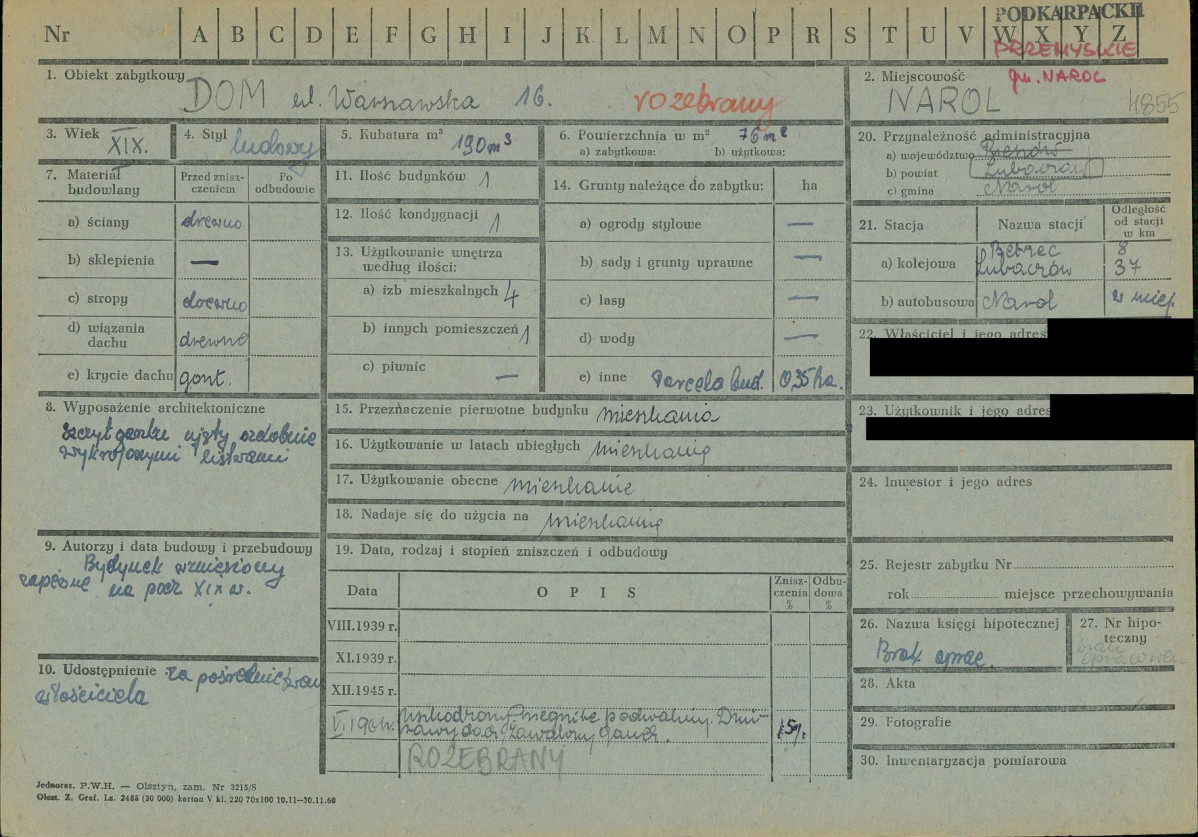 PODKARPACKIE
Nr A B C D E F G H I J K L M N O P R S T U V W X Y Z
PRZEMYSKIE
gm. NAROL
1. Obiekt zabytkowy DOM ul. Warszawska 16. rozebrany
2. Miejscowość NAROL 4855
3. Wiek XIX.
4. Styl ludowy
5. Kubatura m³ 190 m³
6. Powierzchnia w m² 76 m²
a) zabytkowa: b) użytkowa:
7. Materiał budowlany
Przed zniszczeniem
Po odbudowie
a) ściany drewno
b) sklepienia —
c) stropy drewno
d) wiązania dachu drewno
e) krycie dachu gont.
8. Wyposażenie architektoniczne
szczyt ganku ujęty ozdobnie
wykrojonymi listwami
9. Autorzy i data budowy i przebudowy
Budynek wzniesiony
na pocz XIX w.
10. Udostępnienie za pośrednictwem
właściciela
11. Ilość budynków 1
12. Ilość kondygnacji 1
13. Użytkowanie wnętrza
według ilości:
a) izb mieszkalnych 4
b) innych pomieszczeń 1
c) piwnic —
14. Grunty należące do zabytku: ha
a) ogrody stylowe —
b) sady i grunty uprawne —
c) lasy —
d) wody —
e) inne Parcela bud. 0,35 ha.
15. Przeznaczenie pierwotne budynku mieszkania
16. Użytkowanie w latach ubiegłych mieszkanie
17. Użytkowanie obecne mieszkanie
18. Nadaje się do użycia na mieszkanie
19. Data, rodzaj i stopień zniszczeń i odbudowy
Data OPIS Zniszczenia % Odbudowa %
VIII.1939 r.
XI.1939 r.
XII.1945 r.
dach. Zawalony ganek. 15%
ROZEBRANY
20. Przynależność administracyjna
a) województwo
b) powiat Lubaczów
c) gmina Narol
21. Stacja Nazwa stacji Odległość od stacji w km
Bełżec 8
a) kolejowa Lubaczów 37
b) autobusowa Narol w miej.
22. Właściciel i jego adres
23. Użytkownik i jego adres
24. Inwestor i jego adres
25. Rejestr zabytku Nr
rok miejsce przechowywania
26. Nazwa księgi hipotecznej
Brak
27. Nr hipoteczny
brak
28. Akta
29. Fotografie
30. Inwentaryzacja pomiarowa
Jednoraz. P.W.H. — Olsztyn, zam. Nr 3215/S
Olszt. Z. Graf. Lz. 2485 (30 000) karton V kl. 220 70x100 10.11—30.11.60